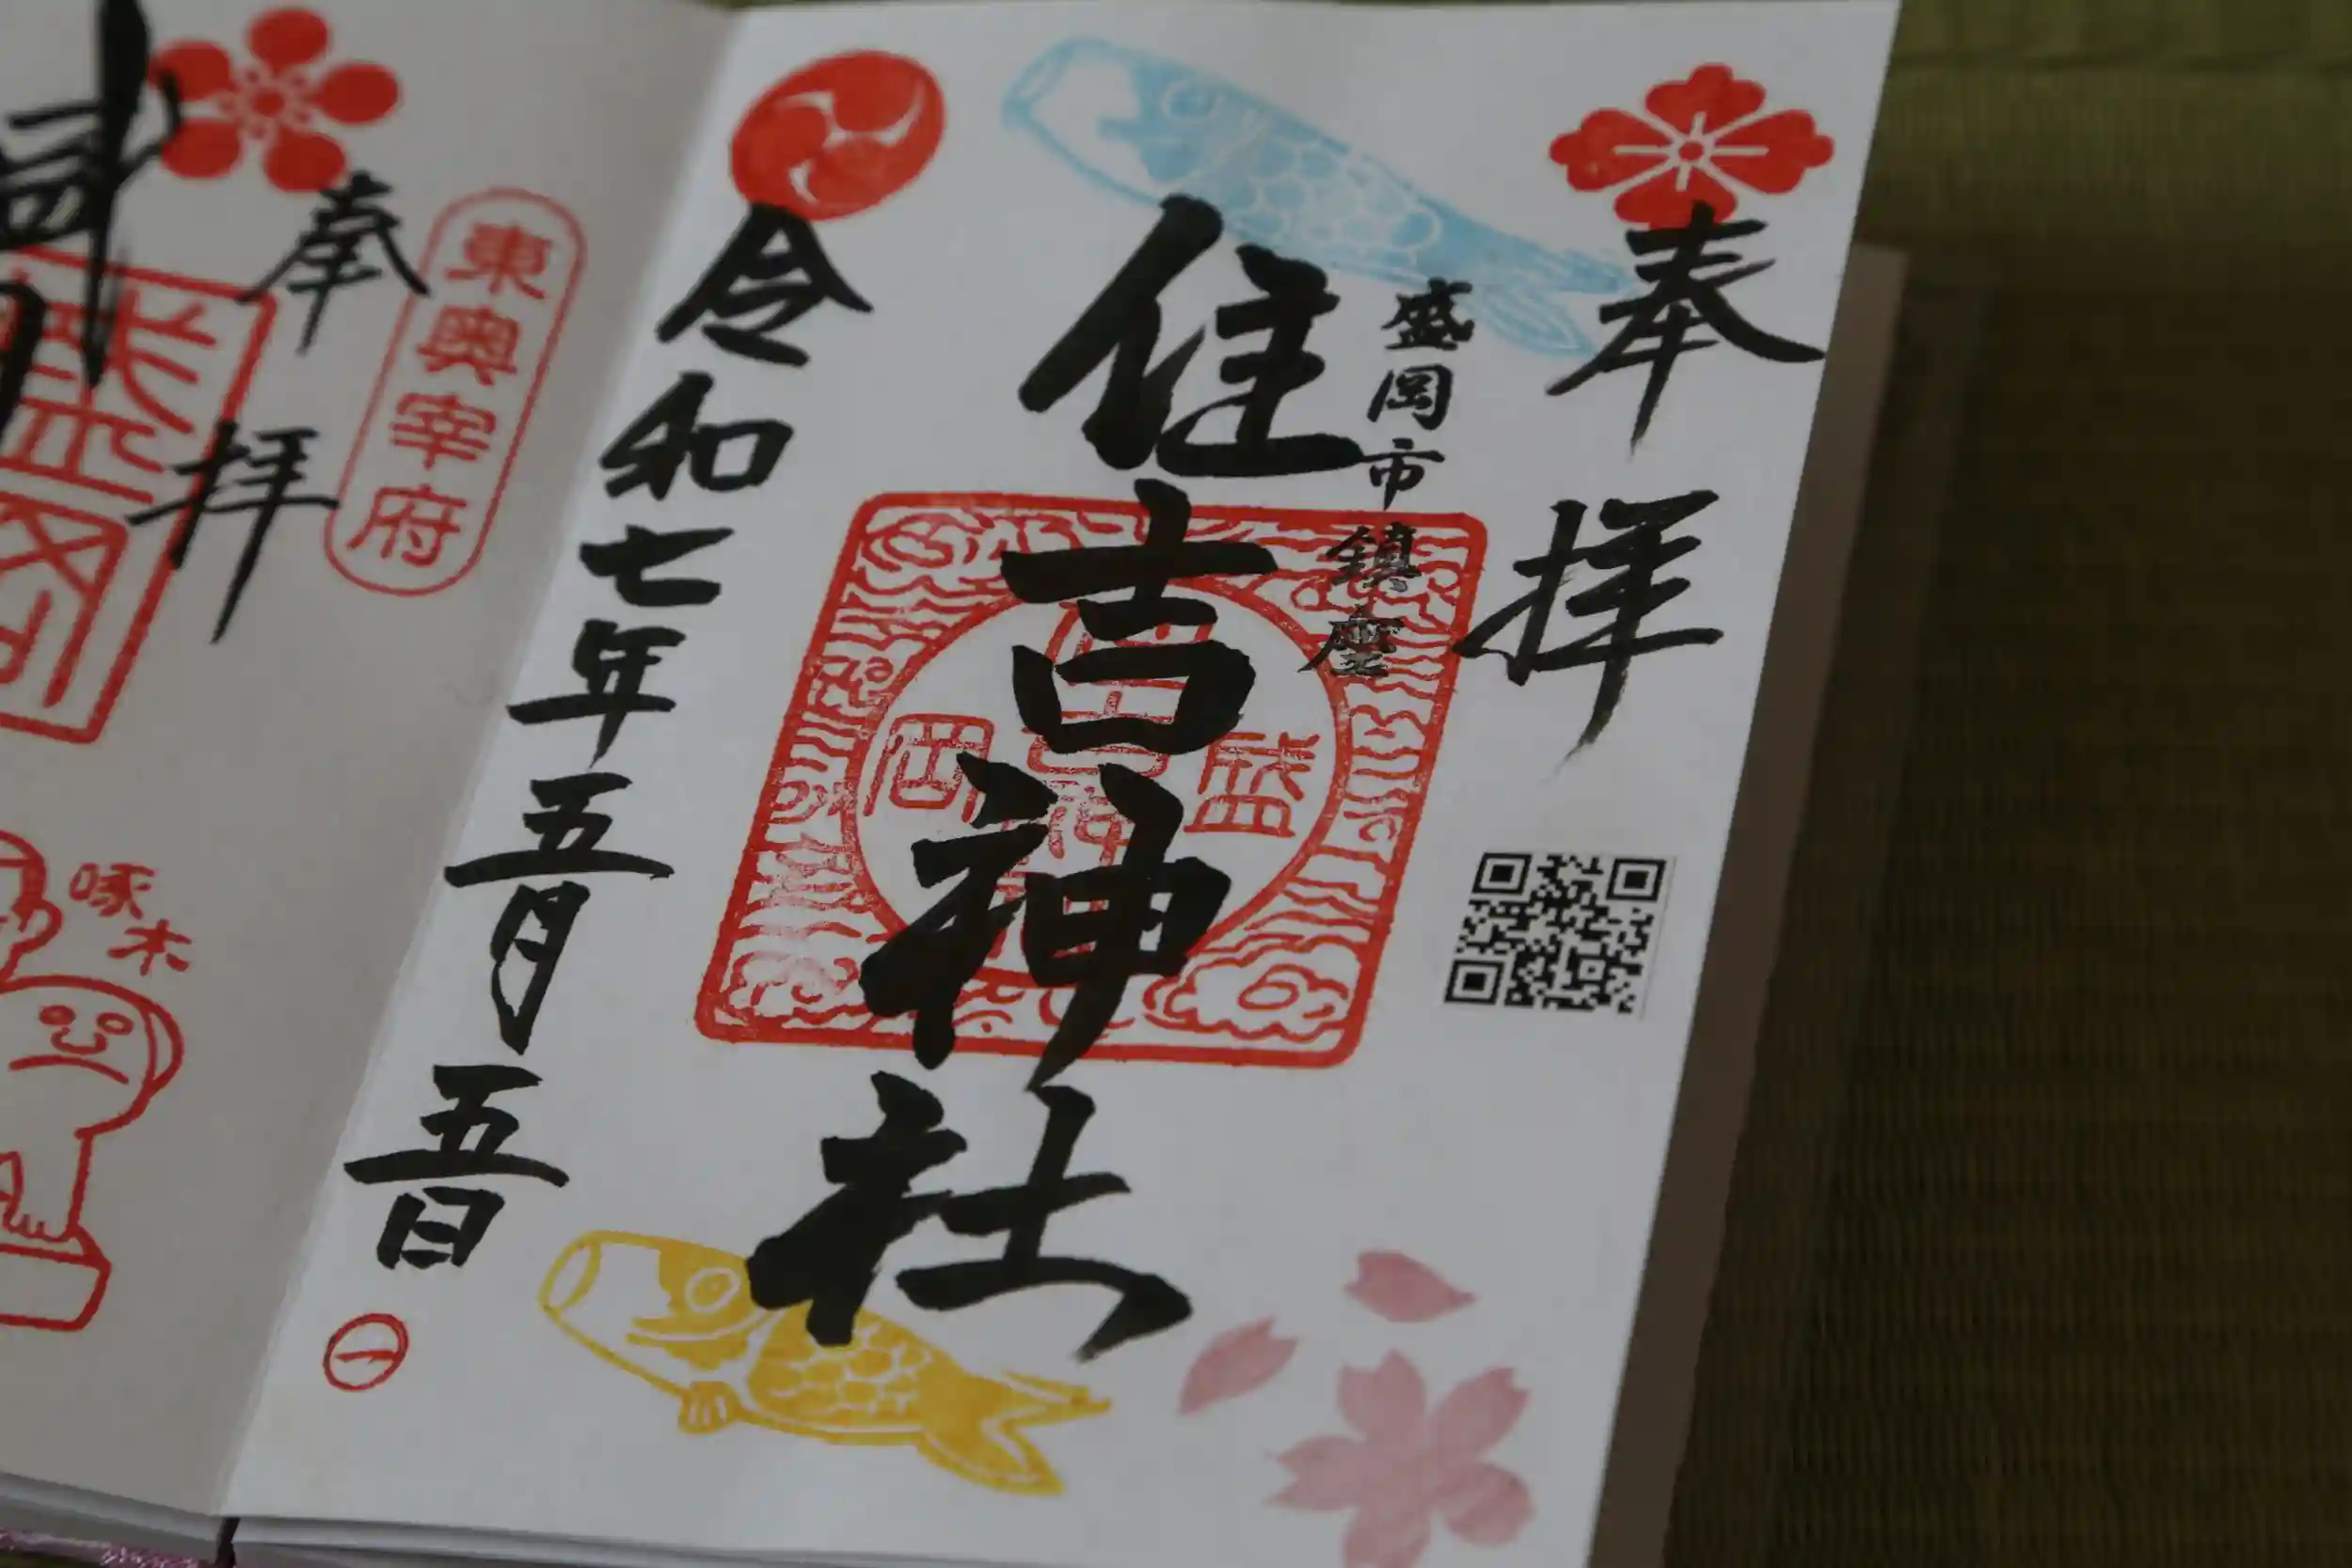 奉拝
盛岡市鎮座
住吉神社
令和七年五月五日
盛
岡
一
東奥宰府
奉拝
啄木